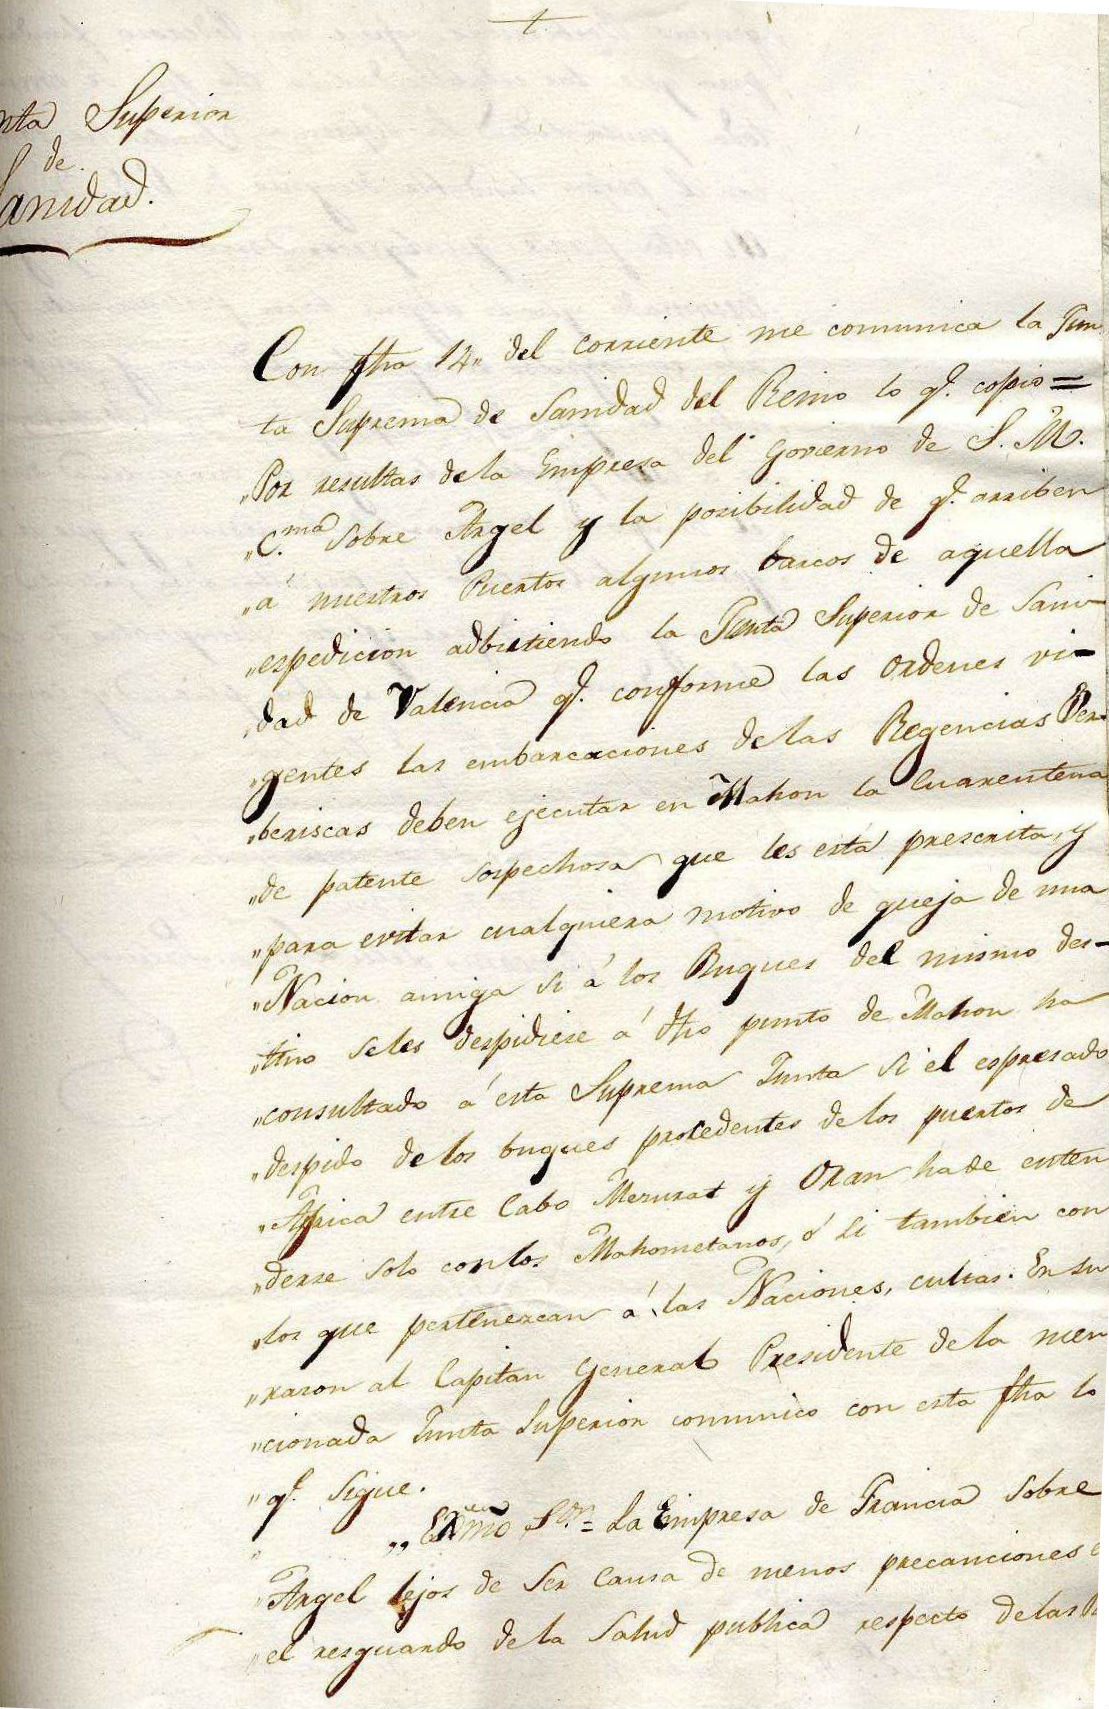 nta Superior
de
anidad.
Con fha 14,, del corriente me comunica la Jun
ta Suprema de Sanidad del Reino lo q.e copio =
„Por resultas de la Empresa del Govierno de S. M.
„C.ma sobre Argel y la posibilidad de q.e arriben
„á nuestros Puertos algunos barcos de aquella
„espedicion adbirtiendo la Junta Superior de Sani-
„dad de Valencia q.e conforme las ordenes vi-
„gentes las embarcaciones de las Regencias Ber-
„beriscas deben ejecutar en Mahon la Cuarentena
„de patente sospechosa que les está prescrita, y
„para evitar cualquiera motivo de queja de una
„Nacion amiga si á los Buques del mismo des-
„tino seles despidiese á dho punto de Mahon ha
„consultado á esta Suprema Junta si el espresado
„despido de los buques procedentes de los puertos de
„Africa entre Cabo Mezurat y Oran hade enten
„derse solo con los Mahometanos, ó si tambien con
„los que pertenezcan á las Naciones, cultas. En su
„razon al Capitan General Presidente de la men
„cionada Junta Superior comunico con esta fha lo
„q.e sigue.
„Exmo S.or = La Empresa de Francia sobre
Argel lejos de ser causa de menos precauciones e
„el resguardo de la Salud publica respecto de las